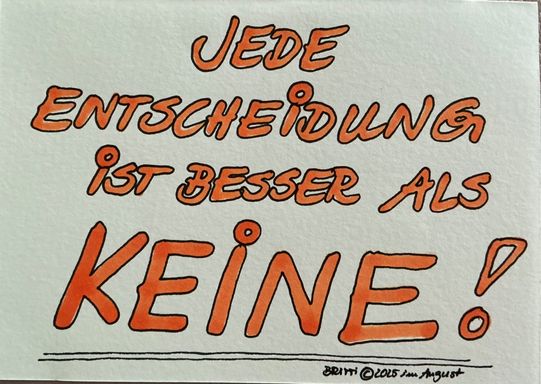 JEDE
ENTSCHEIDUNG
IST BESSER ALS
KEINE!
BRITTI ©2025 im August